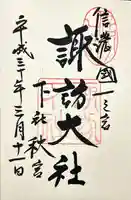 信濃國一之宮
諏訪大社
下社秋宮
平成三十年三月十一日